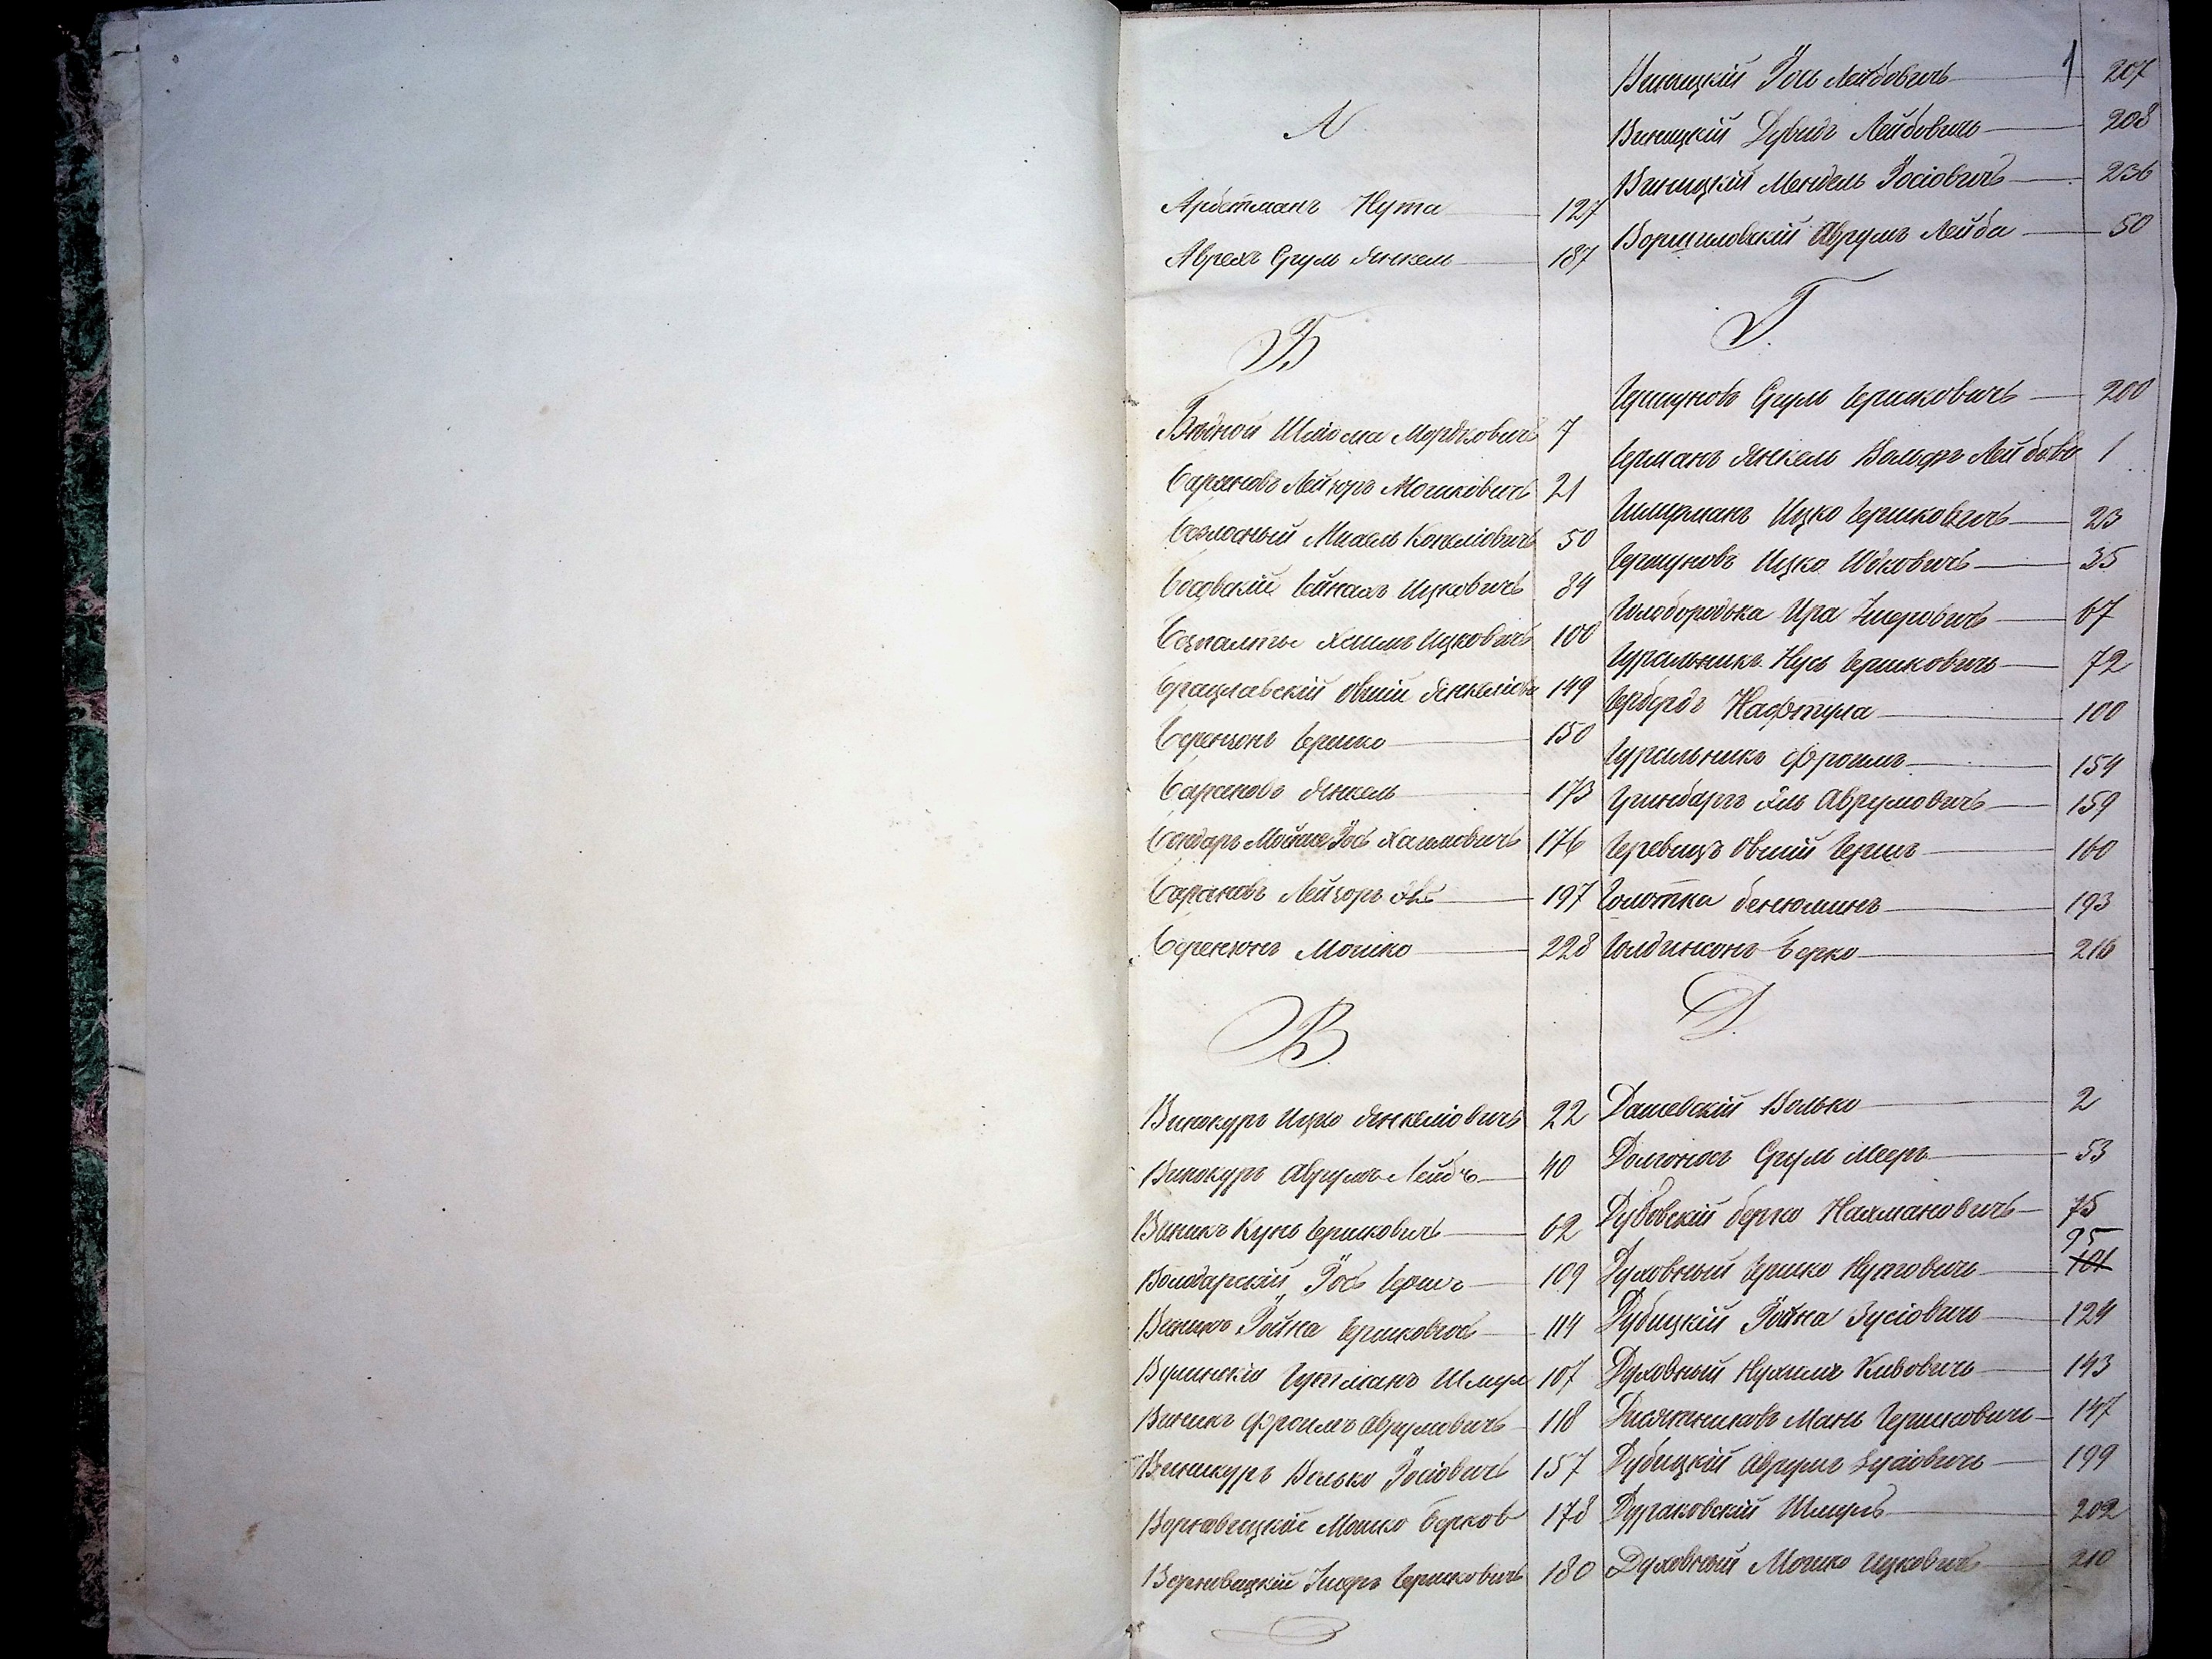 А
Арбетманъ Нута 127
Аврехъ Срул Янкель 187
Б
Бѣдной Шліома Мордковичъ 7
Барановъ Лейзоръ Мошковичъ 21
Михель Копеліовичъ 50
Босовскій Ицковичъ 84
Хаимъ Ицковичъ 100
Брацлавскій Овшій Янкеліов 149
Берензонъ Гершко 150
Барановъ Янкель 173
Бондарь Мойше Іось Хаимовичъ 176
Барановъ Лейзоръ 197
Берензонъ Мошко 228
В
Винокуръ Ицко Янкеліовичъ 22
Винокуръ Аврумъ Лейбъ 40
Виникъ Кунь Гершковичъ 62
Володарскій Іось Гершъ 109
Винникъ Іойна Гершковичъ 114
Гутманъ Шмул 107
Виникъ Фроимъ Аврумовичъ 118
Винокуръ Волько Іосіовичъ 157
Верновицкій Мошко Берков 178
Верновицкій Гершковичъ 180
1
Виницкій Іось Лейбовичъ 207
Виницкій Дувидъ Лейбовичъ 208
Виницкій Мендель Іосіовичъ 236
Ворошиловскій Аврумъ Лейба 50
Г.
Гершуновъ Срулъ Гершковичъ 200
Германъ Янкель Вольфъ Лейбов 1
Ицко Гершковичъ 23
Гершуновъ Ицко 35
Голобородька 67
Гуральникъ Нусь Гершковичъ 72
Гербердъ Нафтула 100
Гуральникъ Фроимъ 154
Гринбаргъ Аврумовичъ 159
Гервицъ Овшій Гершъ 160
Бенюминъ 193
Голдинзонъ Берко 216
Д.
Дашевскій Волько 2
Долгоносъ Срулъ Мееръ 53
Дубовскій Берко Нахмановичъ 75
Духовный Гершко Нутовичъ 95 101
Дубицкій Іойна Зусіовичъ 124
Духовный Нухимъ Кивовичъ 143
Мань Гершковичъ 147
Дубицкій Аврумъ Зусіовичъ 199
Дураковскій Шмуль 202
Духовный Мошко Ицковичъ 210